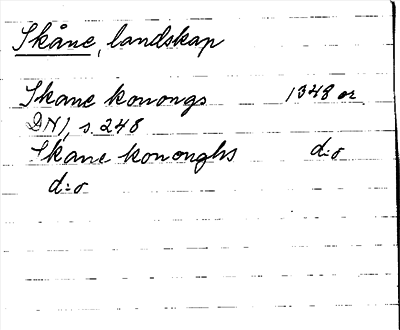 Skåne, landskap
Skane konongs 1343 or
DN 1, s. 248
Skane kononghs d:o
d:o